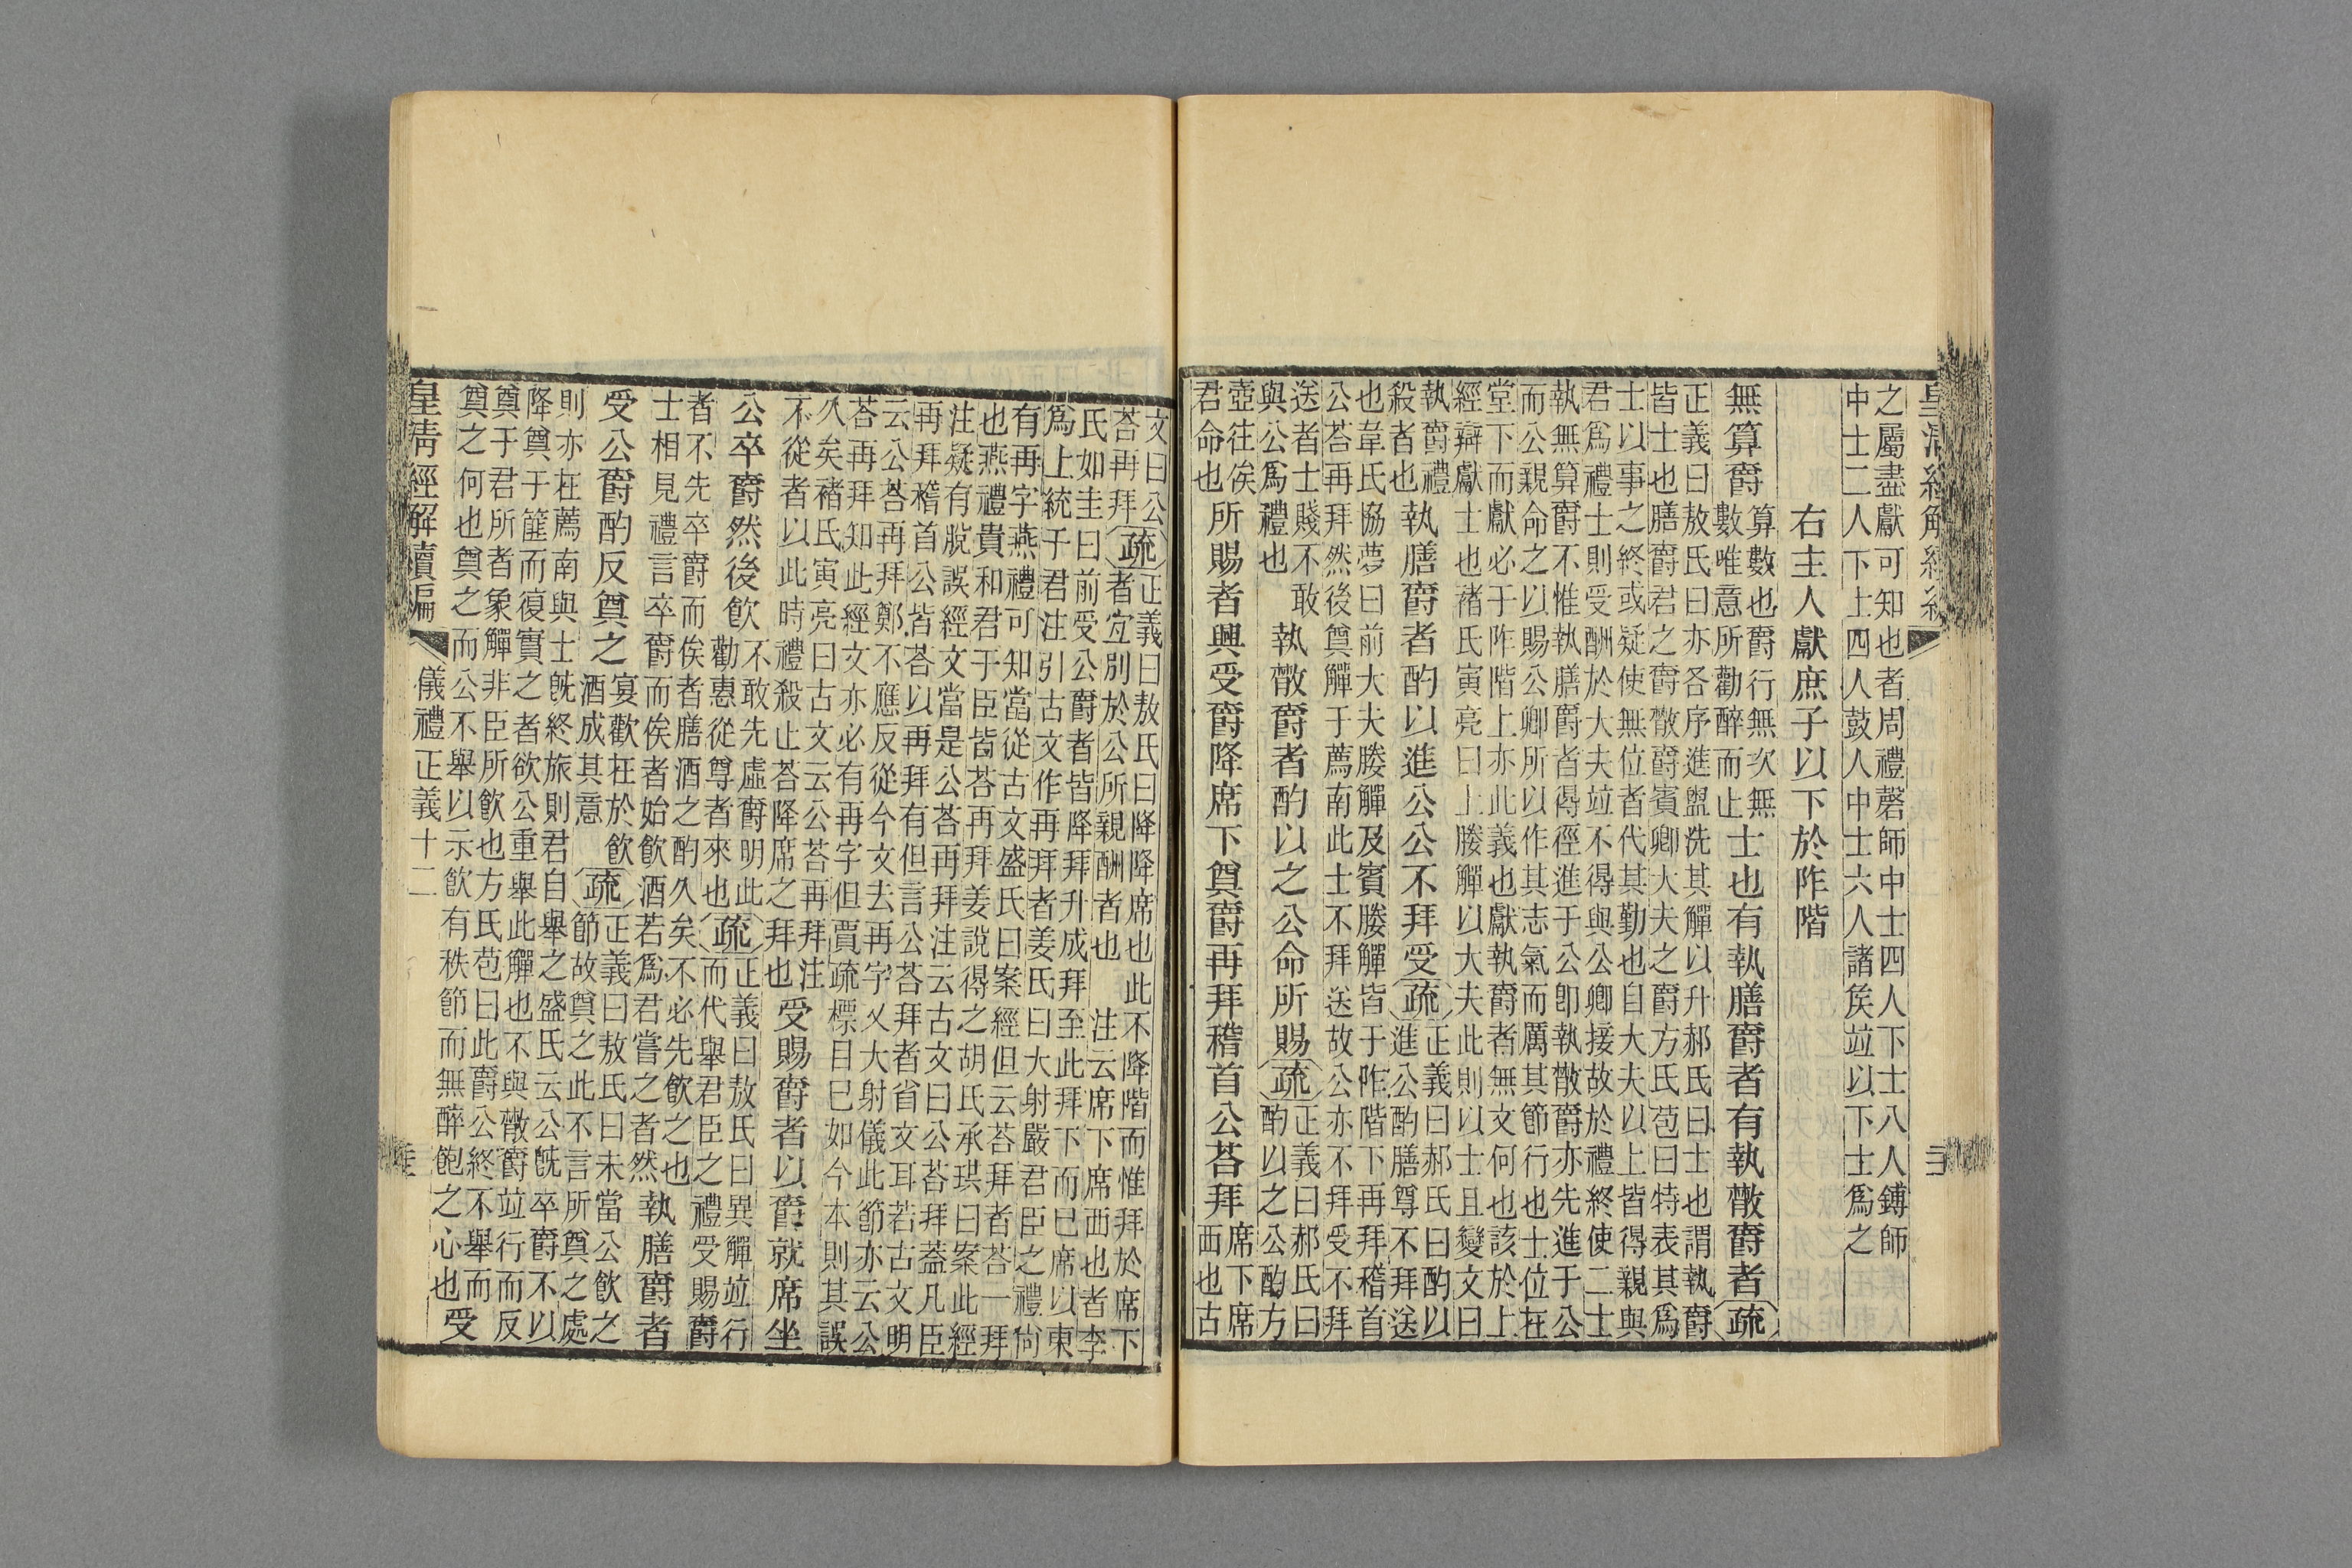 之屬盡獻可知也者周禮磬師中士四人下士八人鎛師
中士二人下士四人鼓人中士六人諸矦竝以下士爲之
右主人獻庶子以下於阼階
無算爵 算數也爵行無次無數唯意所勸醉而止 士也有執膳爵者有執散爵者疏
正義曰敖氏曰亦各序進盥洗其觶以升郝氏曰士也謂執爵
皆士也膳爵君之爵散爵賓卿大夫之爵方氏苞曰特表其爲
士以事之終或疑使無位者代其勤也自大夫以上皆得親與
君爲禮士則受酬於大夫竝不得與公卿接故於禮終使二士
執無算爵不惟執膳爵者得徑進于公卽執散爵亦先進于公
而公親命之以賜公卿所以作其志氣而厲其節行也士位在
堂下而獻必于阼階上亦此義也獻執爵者無文何也該於上
經辯獻士也褚氏寅亮曰上媵觶以大夫此則以士且變文曰
執爵禮殺者也 執膳爵者酌以進公公不拜受疏 正義曰郝氏曰酌以進公酌膳尊不拜送
也韋氏協夢曰前大夫媵觶及賓媵觶皆于阼階下再拜稽首
公荅再拜然後奠觶于薦南此士不拜送故公亦不拜受不拜
送者士賤不敢與公爲禮也 執散爵者酌以之公命所賜疏 正義曰郝氏曰酌以之公酌方
壺往俟君命也 所賜者興受爵降席下奠爵再拜稽首公荅拜 席下席西也古
文曰公荅再拜 疏 正義曰敖氏曰降降席也此不降階而惟拜於席下者宜別於公所親酬者也 注云席下席西也者李
氏如圭曰前受公爵者皆降拜升成拜至此拜下而已席以東
爲上統于君注引古文作再拜者姜氏曰大射嚴君臣之禮尙
有再字燕禮可知當從古文盛氏曰案經但云荅拜者荅一拜
也燕禮貴和君于臣皆荅再拜姜說得之胡氏承珙曰案此經
注疑有脫誤經文當是公荅再拜注云古文曰公荅拜葢凡臣
再拜稽首公皆荅以再拜有但言公荅拜者省文耳若古文明
云公荅再拜鄭不應反從今文去再字乂大射儀此節亦云公
荅再拜知此經文亦必有再字但賈疏標目已如今本則其誤
久矣褚氏寅亮曰古文云公荅再拜注不從者以此時禮殺止荅降席之拜也 受賜爵者以爵就席坐
公卒爵然後飮 不敢先虛爵明此勸惠從尊者來也 疏 正義曰敖氏曰異觶竝行而代舉君臣之禮受賜爵
者不先卒爵而俟者膳酒之酌久矣不必先飮之也士相見禮言卒爵而俟者始飮酒若爲君嘗之者然 執膳爵者
受公爵酌反奠之 宴歡在於飮酒成其意 疏 正義曰敖氏曰未當公飮之節故奠之此不言所奠之處
則亦在薦南與士旣終旅則君自舉之盛氏云公旣卒爵不以
降奠于篚而復實之者欲公重舉此觶也不與散爵竝行而反
奠于君所者象觶非臣所飮也方氏苞曰此爵公終不舉而奠之何也奠之而公不舉以示飮有秩節而無醉飽之心也 受
皇清經解續編 儀禮正義十二